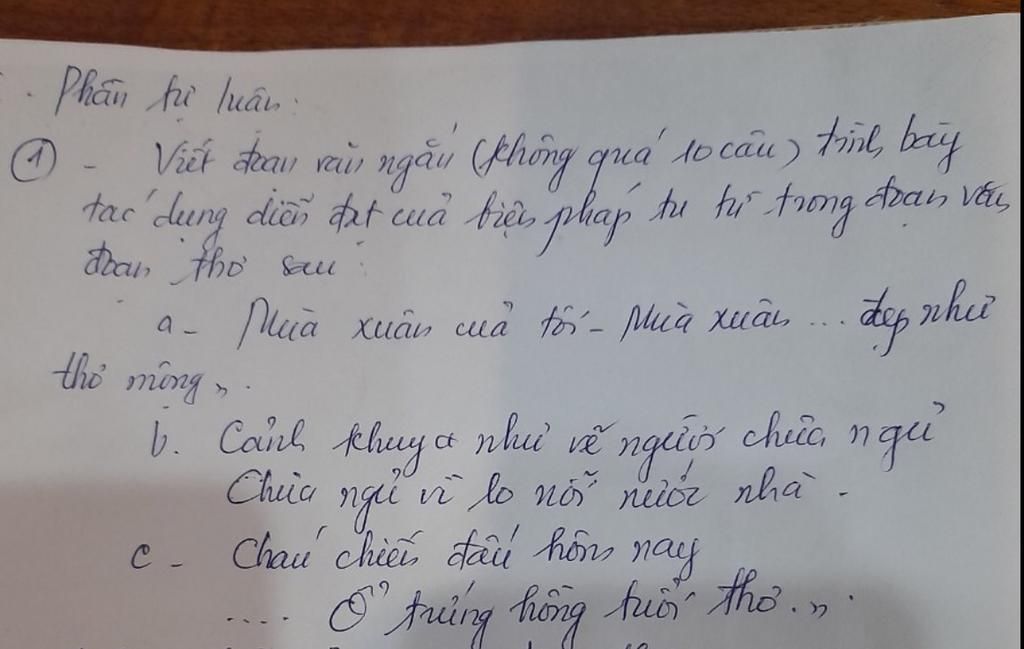 . Phần tự luận:
① - Viết đoạn văn ngắn (không quá 10 câu) trình bày
tác dụng diễn đạt của biện pháp tu từ trong đoạn văn,
đoạn thơ sau:
a - Mùa xuân của tôi - Mùa xuân ... đẹp như
thơ mộng".
b. Cảnh khuya như vẽ người chưa ngủ
Chưa ngủ vì lo nỗi nước nhà.
c - Cháu chiến đấu hôm nay
.... Ổ trứng hồng tuổi thơ.".